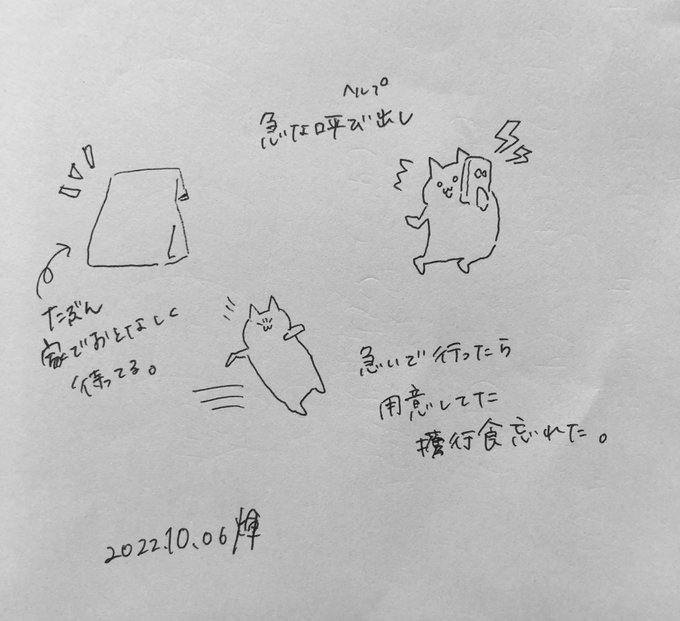 ヘルプ
急な呼び出し
たぶん
家でおとなしく
待ってる。
急いで行ったら
用意してた
携行食忘れた。
2022.10.06 輝